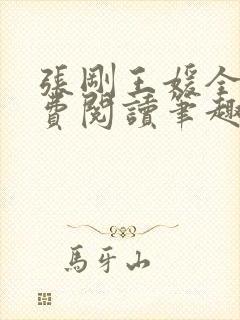 張剛王媛全
費閱讀筆趣
馬牙山